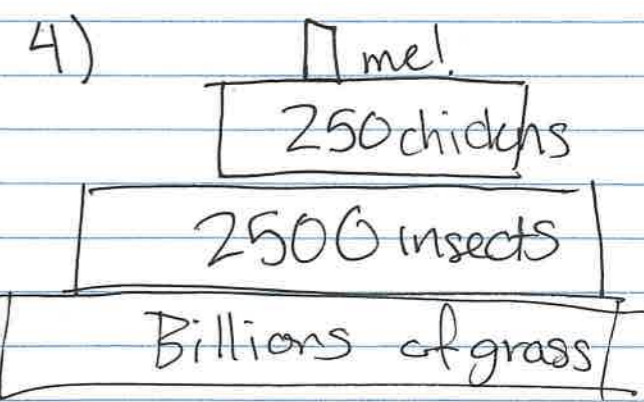 4)
me!
250 chickns
2500 insects
Billions of grass